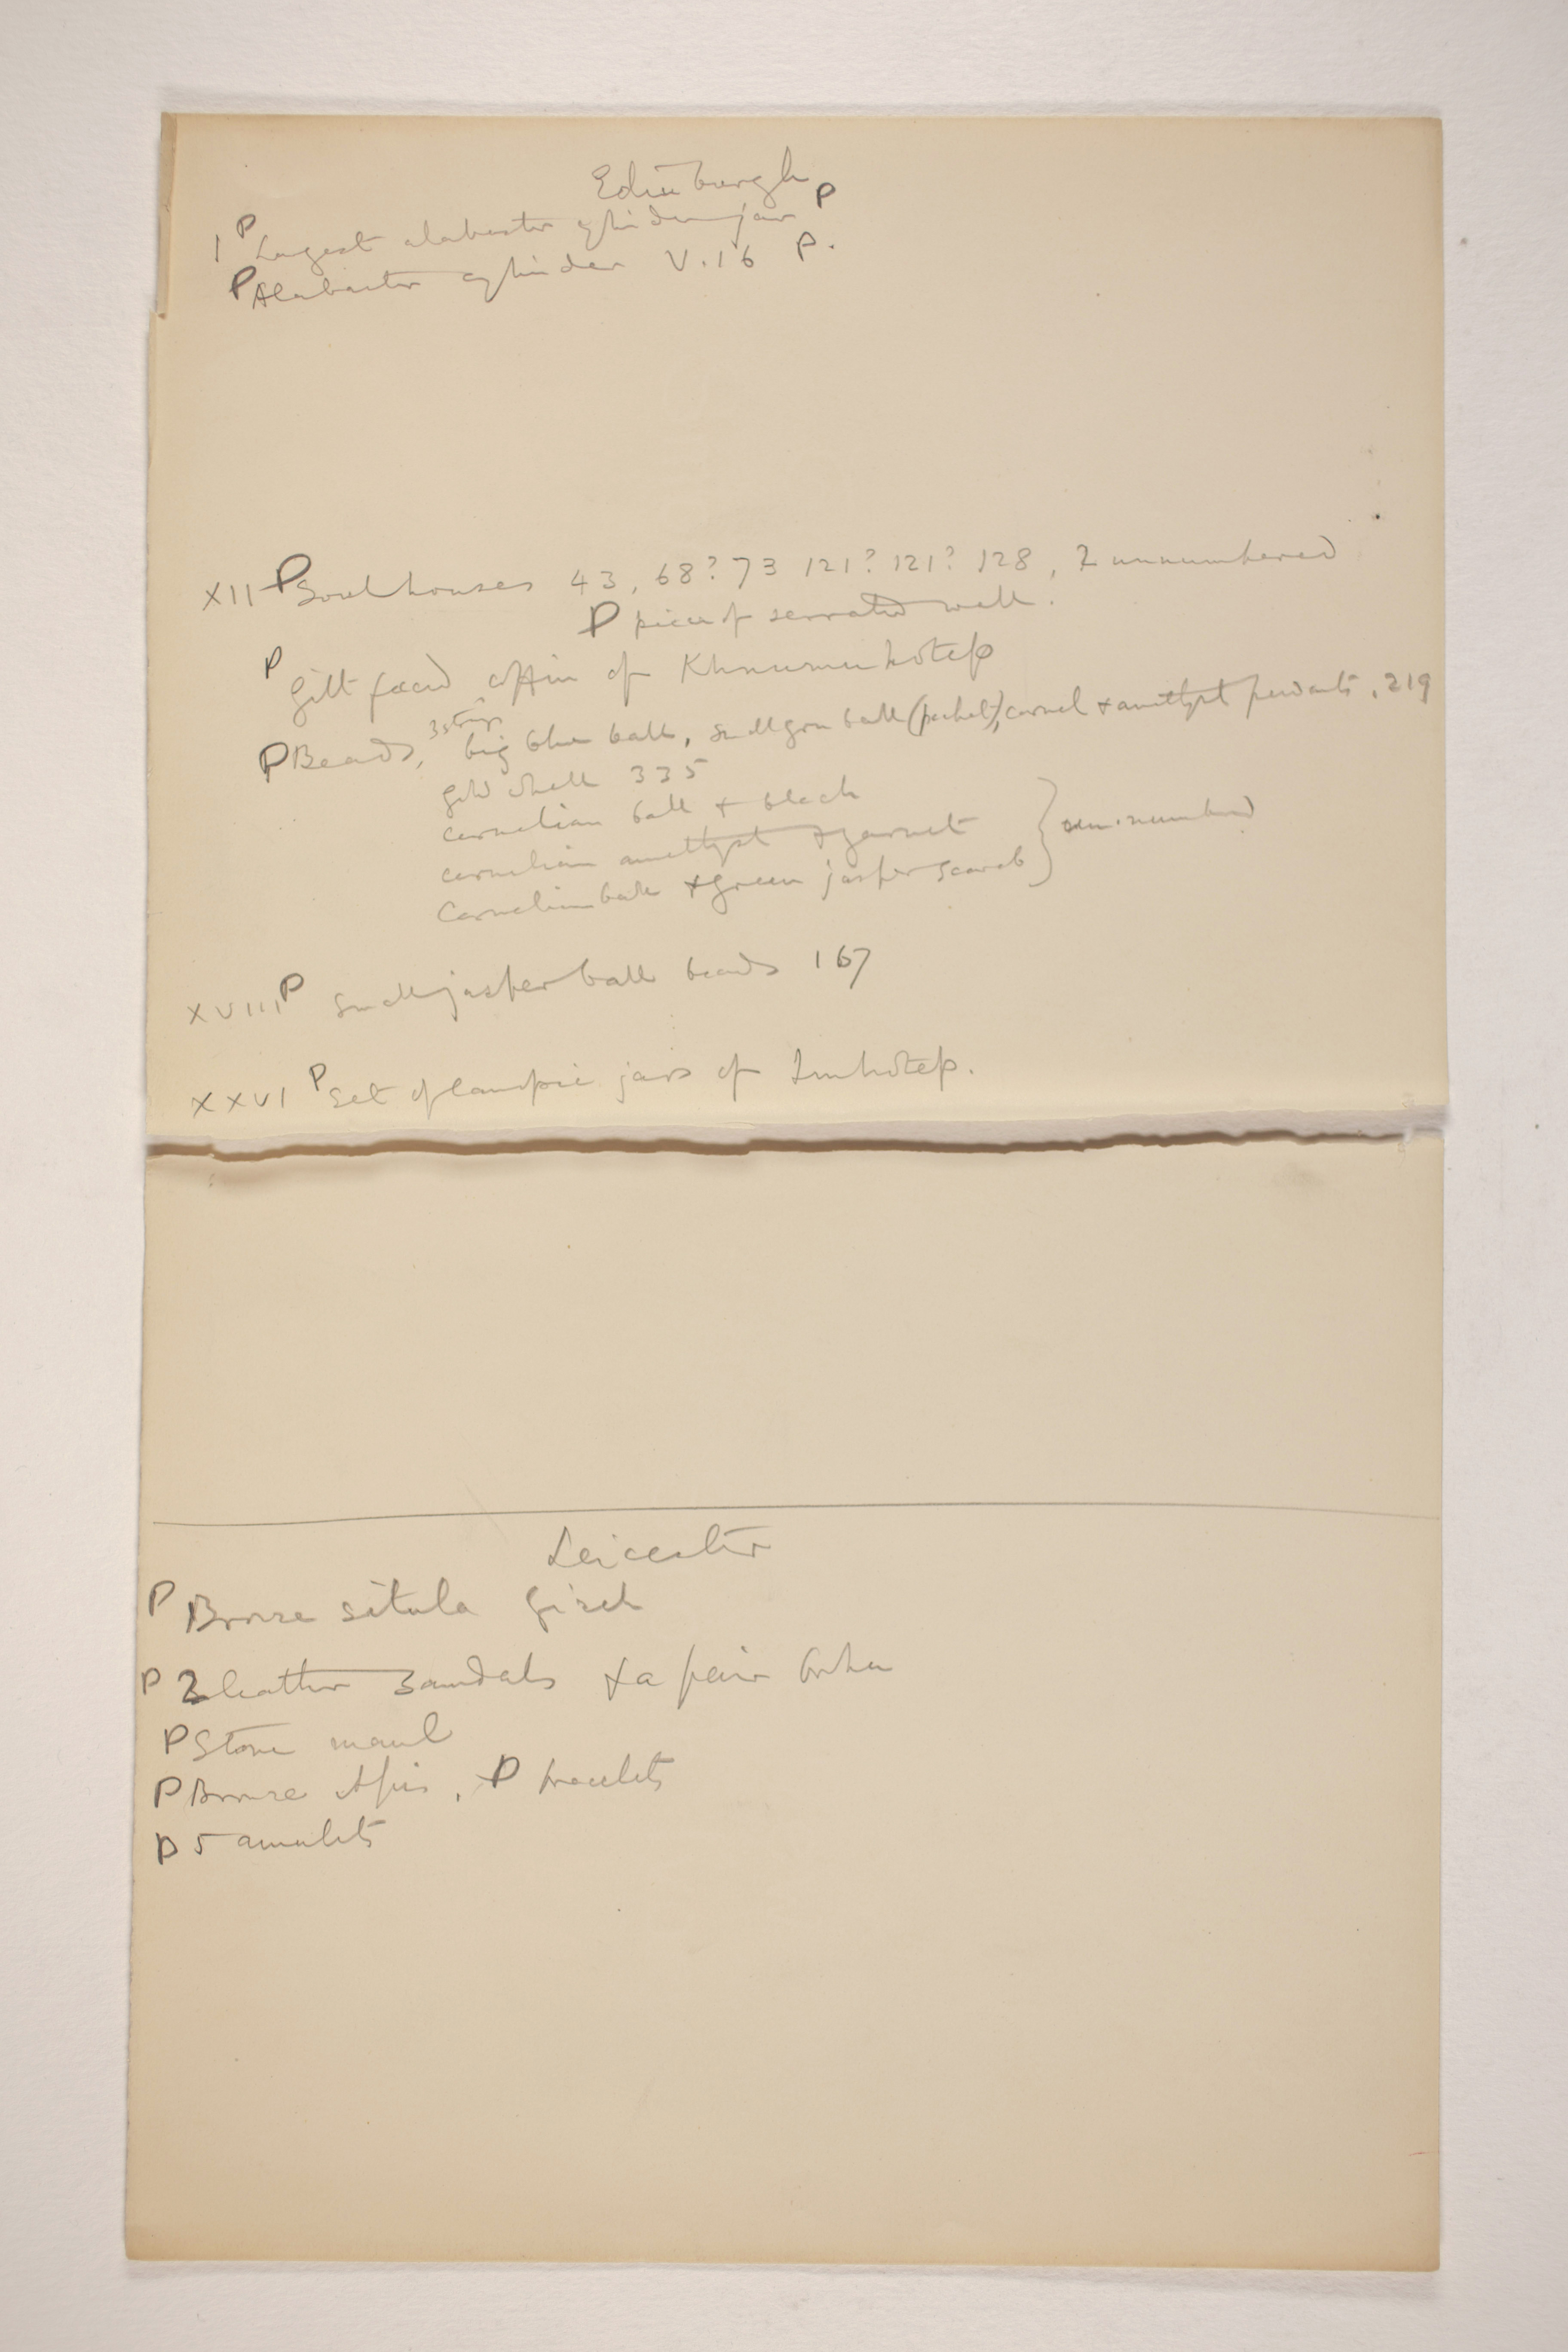 Edinburgh
1 P Largest alabaster cylinder jar P
P Alabaster cylinder V.16 P.
XII P Soul houses 43, 68? 73 121? 121? 128, 2 unnumbered
P piece of serrated wall.
P Gilt faced coffin of Khnumuhotep
P Beads, 3 strings big blue ball, small grn ball (packet), carnel & amethyst pendants, 219
gold shell 335
carnelian ball & black
carnelian amethyst & garnet
Carnelian ball & green jasper scarab } un-numbered
XVIII P Small jasper ball beads 167
XXVI P Set of canopic jars of Imhotep.
Leicester
P Bronze situla Gizeh
P 2 leather sandals & a pair
P Stone maul
P Bronze Apis, P bracelets
P 5 amulets